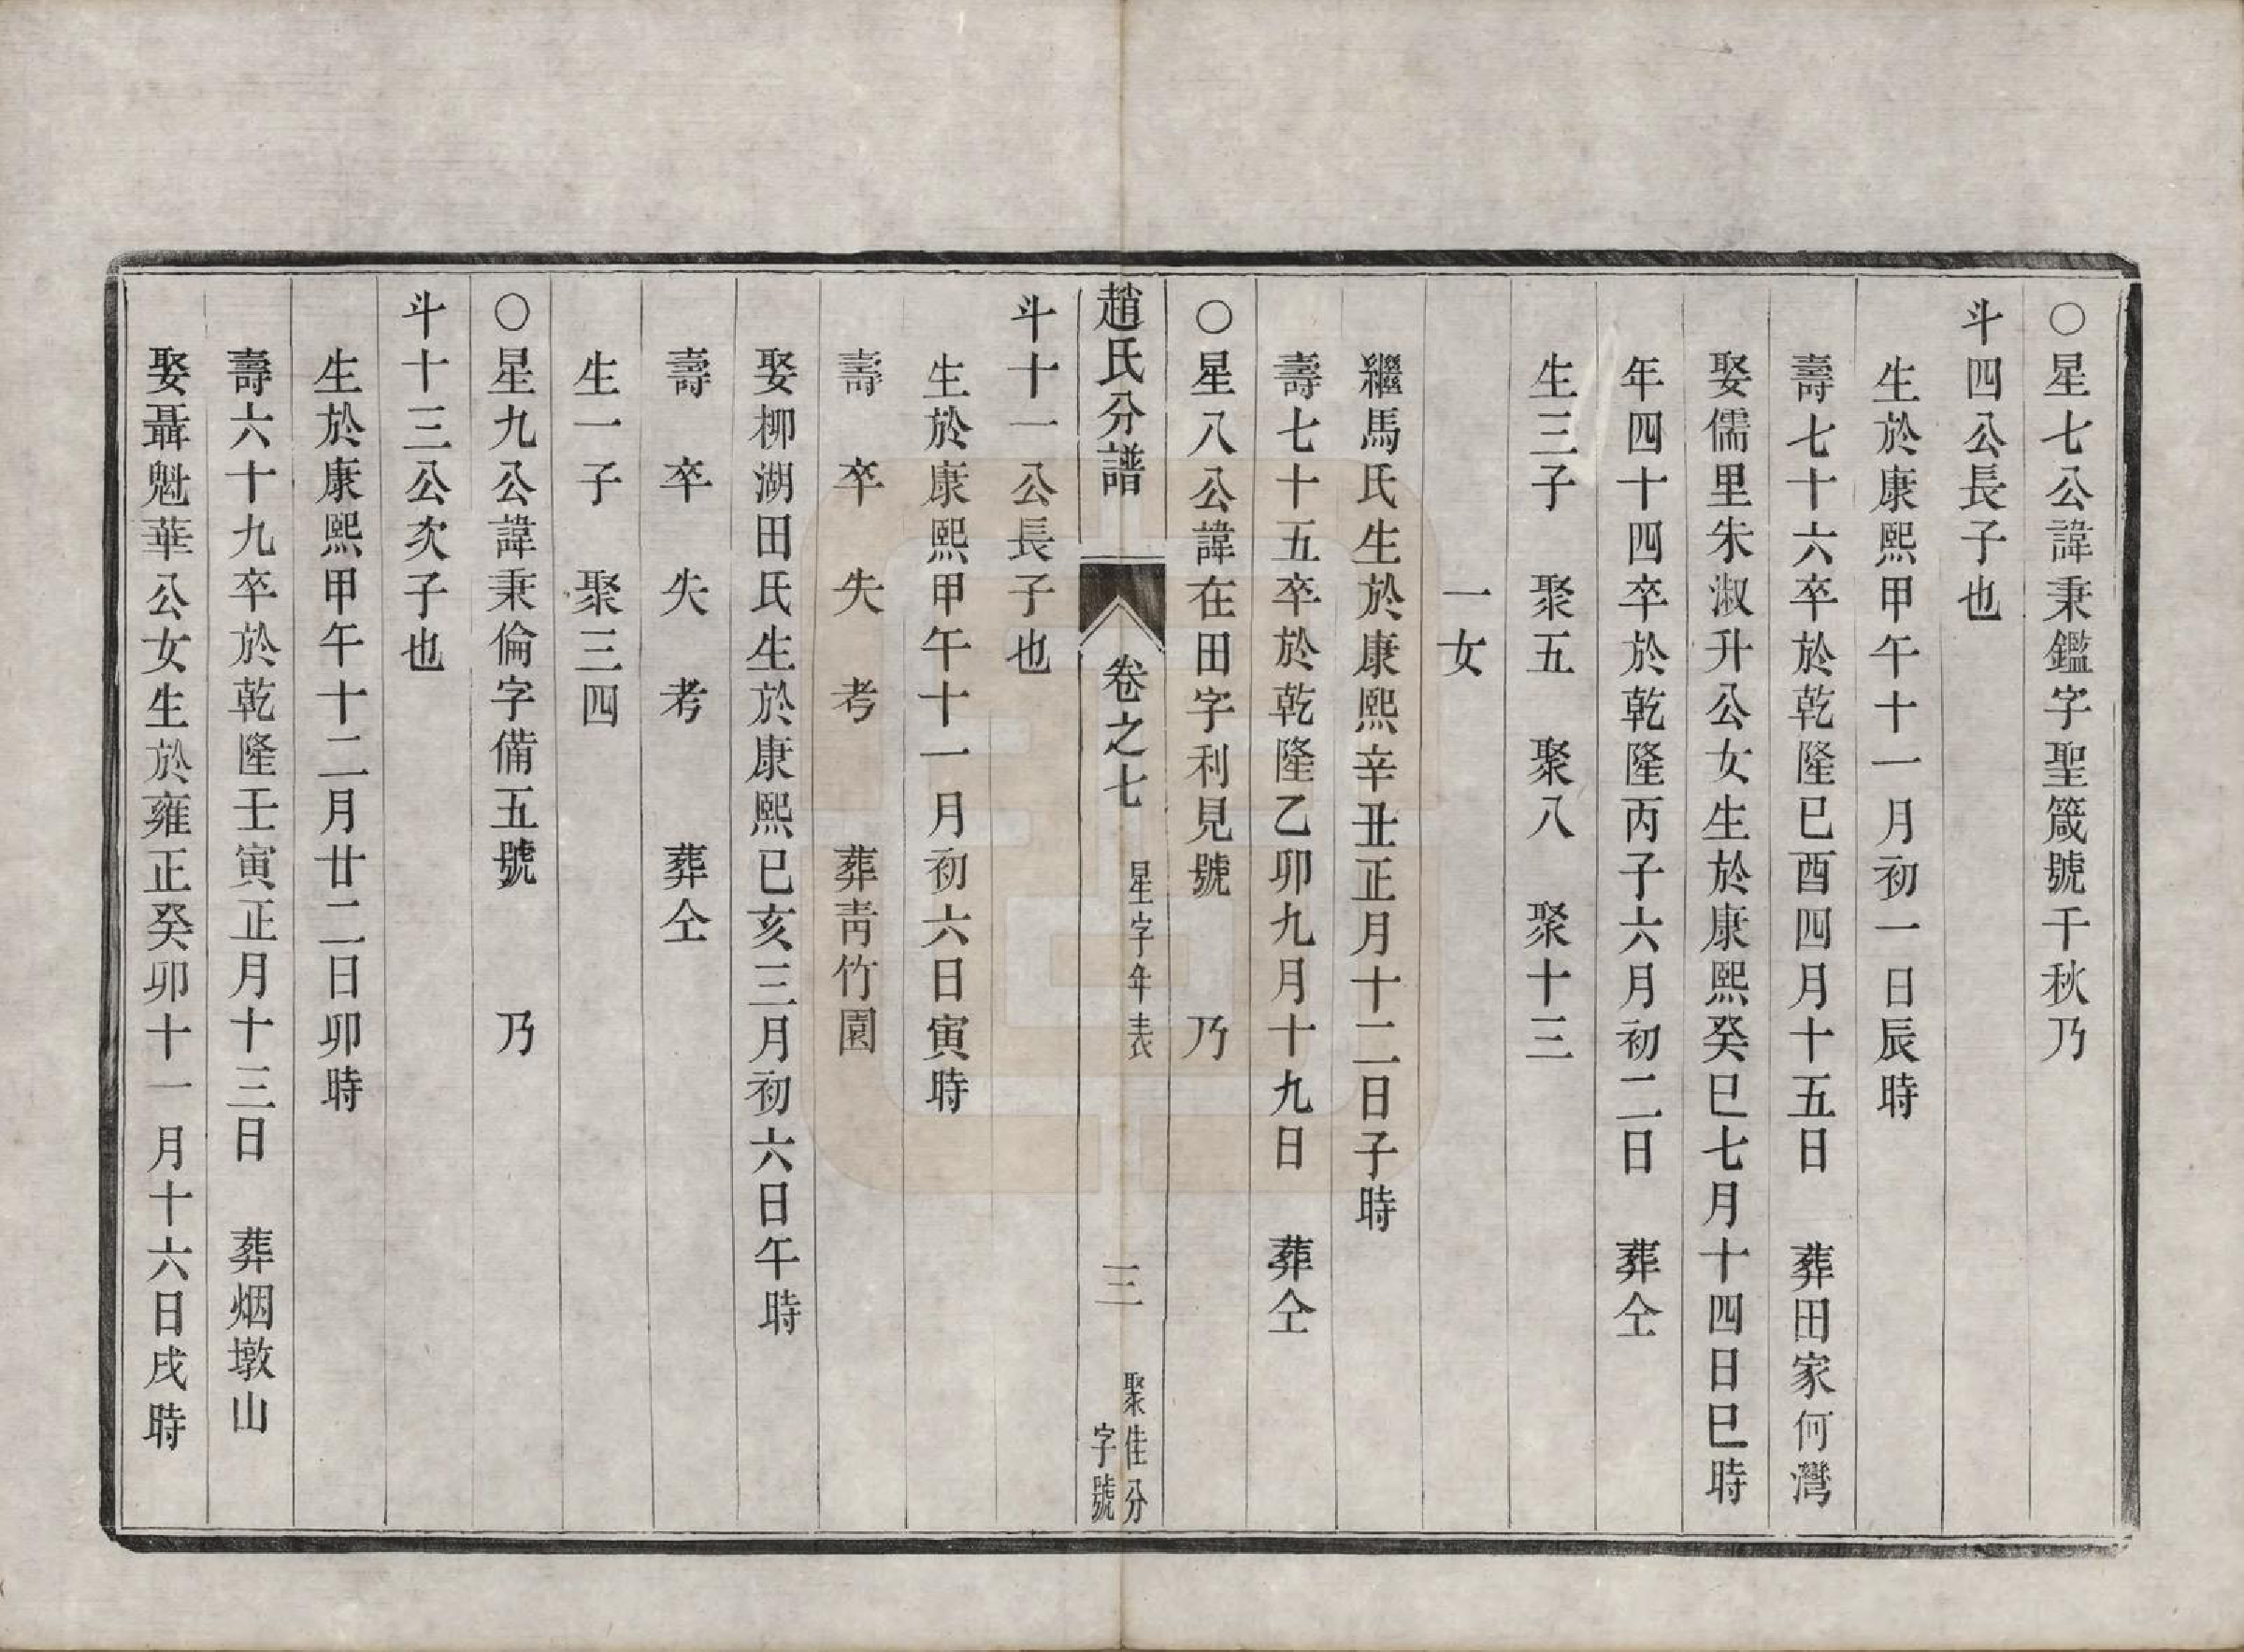 ○星七公諱秉鑑字聖箴號千秋乃
斗四公長子也
生於康熙甲午十一月初一日辰時
壽七十六卒於乾隆已酉四月十五日　葬田家何灣
娶儒里朱淑升公女生於康熙癸巳七月十四日巳時
年四十四卒於乾隆丙子六月初二日　葬仝
生三子　聚五　聚八　聚十三
一女
繼馬氏生於康熙辛丑正月十二日子時
壽七十五卒於乾隆乙卯九月十九日　葬仝
○星八公諱在田字利見號　　乃
趙氏分譜　卷之七　星字年表　三　聚佳分字號
斗十一公長子也
生於康熙甲午十一月初六日寅時
壽　卒　失　考　　葬靑竹園
娶柳湖田氏生於康熙已亥三月初六日午時
壽　卒　失　考　　葬仝
生一子　聚三四
○星九公諱秉倫字備五號　　乃
斗十三公次子也
生於康熙甲午十二月廿二日卯時
壽六十九卒於乾隆壬寅正月十三日　葬烟墩山
娶聶魁華公女生於雍正癸卯十一月十六日戌時